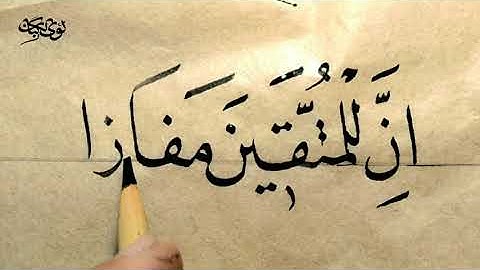 اِنَّ لِلْمُتَّقِينَ مَفَازا